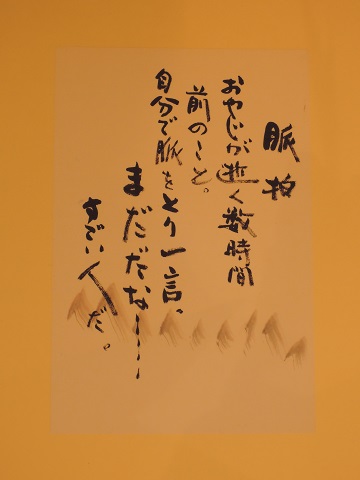 脈拍
おやじが逝く数時間
前のこと。
自分で脈をとり一言。
まだだなー
すごい人だ。